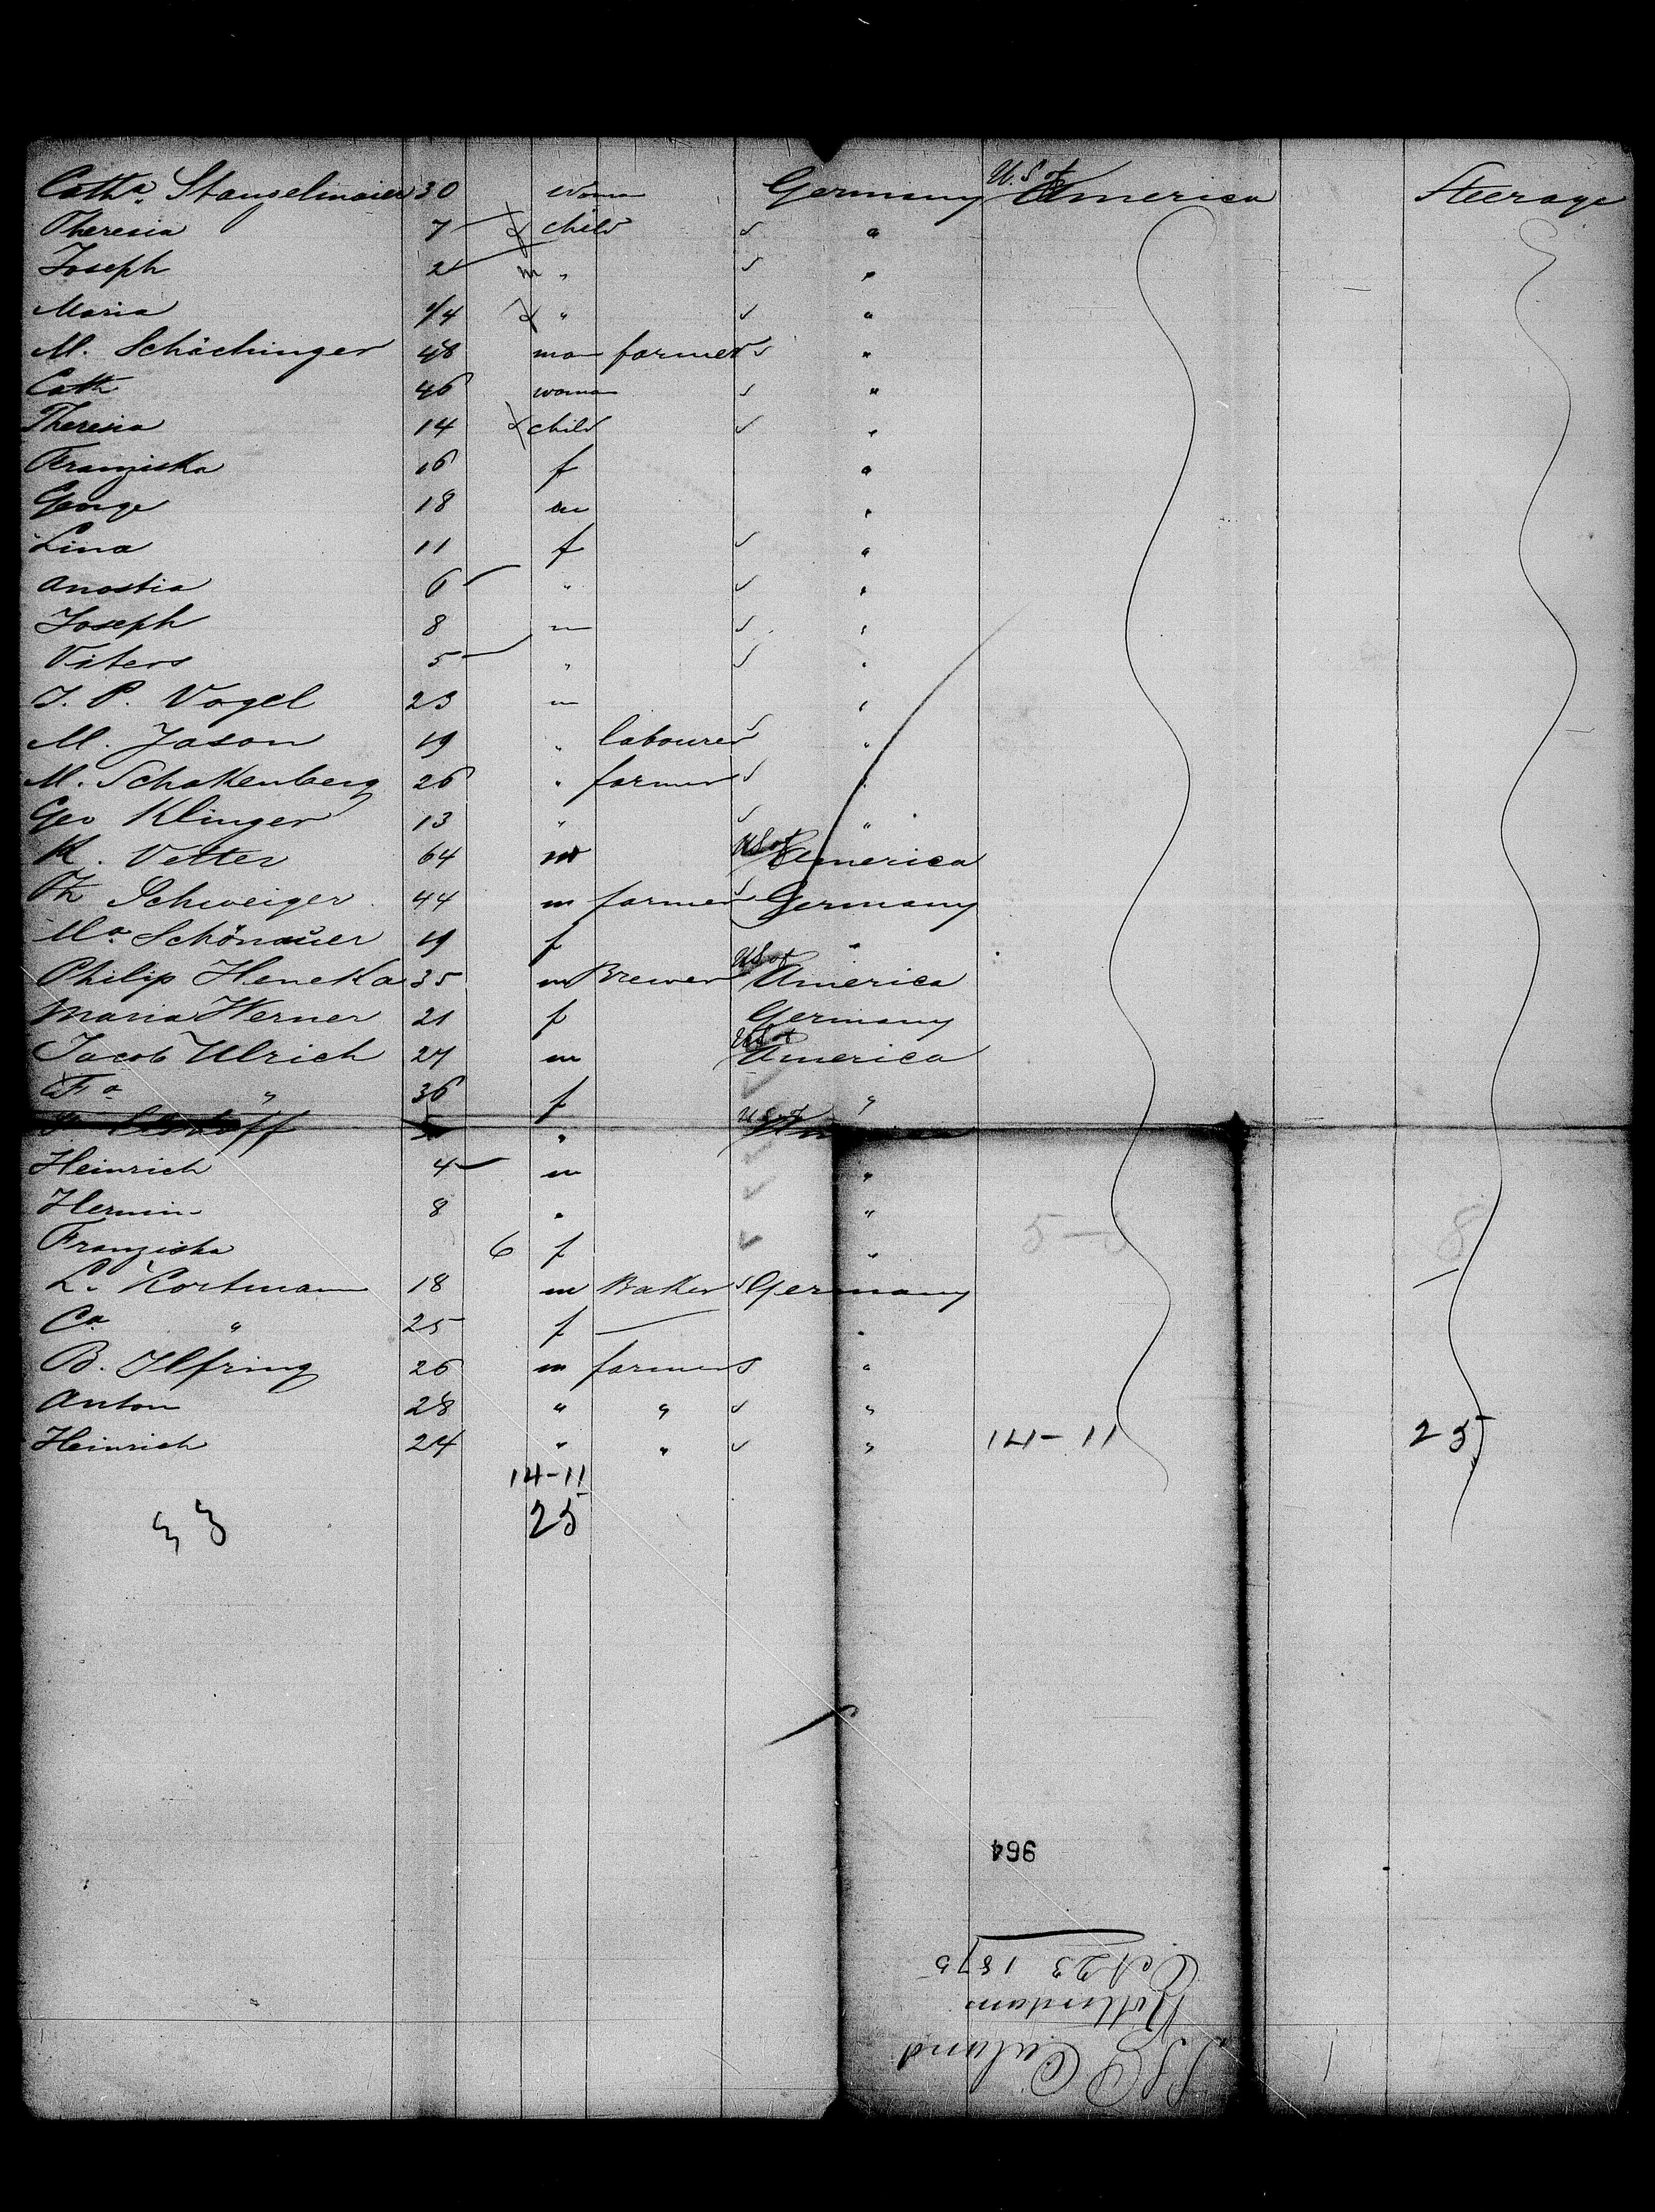 Cath.a Stangelmaier 30 Woman Germany U.S of America Steerage
Theresia 7 child "
Joseph 2 m " "
Maria 1/4 " "
M. Schächinger 48 man farmer "
Cath 46 woman "
Theresia 14 child "
Franziska 16 f "
George 18 m "
Lina 11 f "
Anastia 6 " "
Joseph 8 m "
Viters 5 " "
J. P. Vogel 23 m "
M. Jason 19 " labourer "
M. Schakenberg 26 " farmer "
Geo Klinger 13 " "
K. Vetter 64 m US of America
Th Schweiger 44 m farmer Germany
Ma. Schönauer 19 f "
Philip Heneka 35 m Brewer US of America
Maria Werner 21 f Germany
Jacob Ulrich 27 m US of America
Fa. " 36 f "
" U S of
Heinrich 4 m "
Hermin 8 " "
Franziska 6 f "
L. Kortmann 18 m Baker Germany
Ca " 25 f "
B. Ilfring 26 m farmer "
Anton 28 " " "
Heinrich 24 " " " 14-11 25
14-11
33 25
964
SS P Caland
Rotterdam
Oct 23 1875